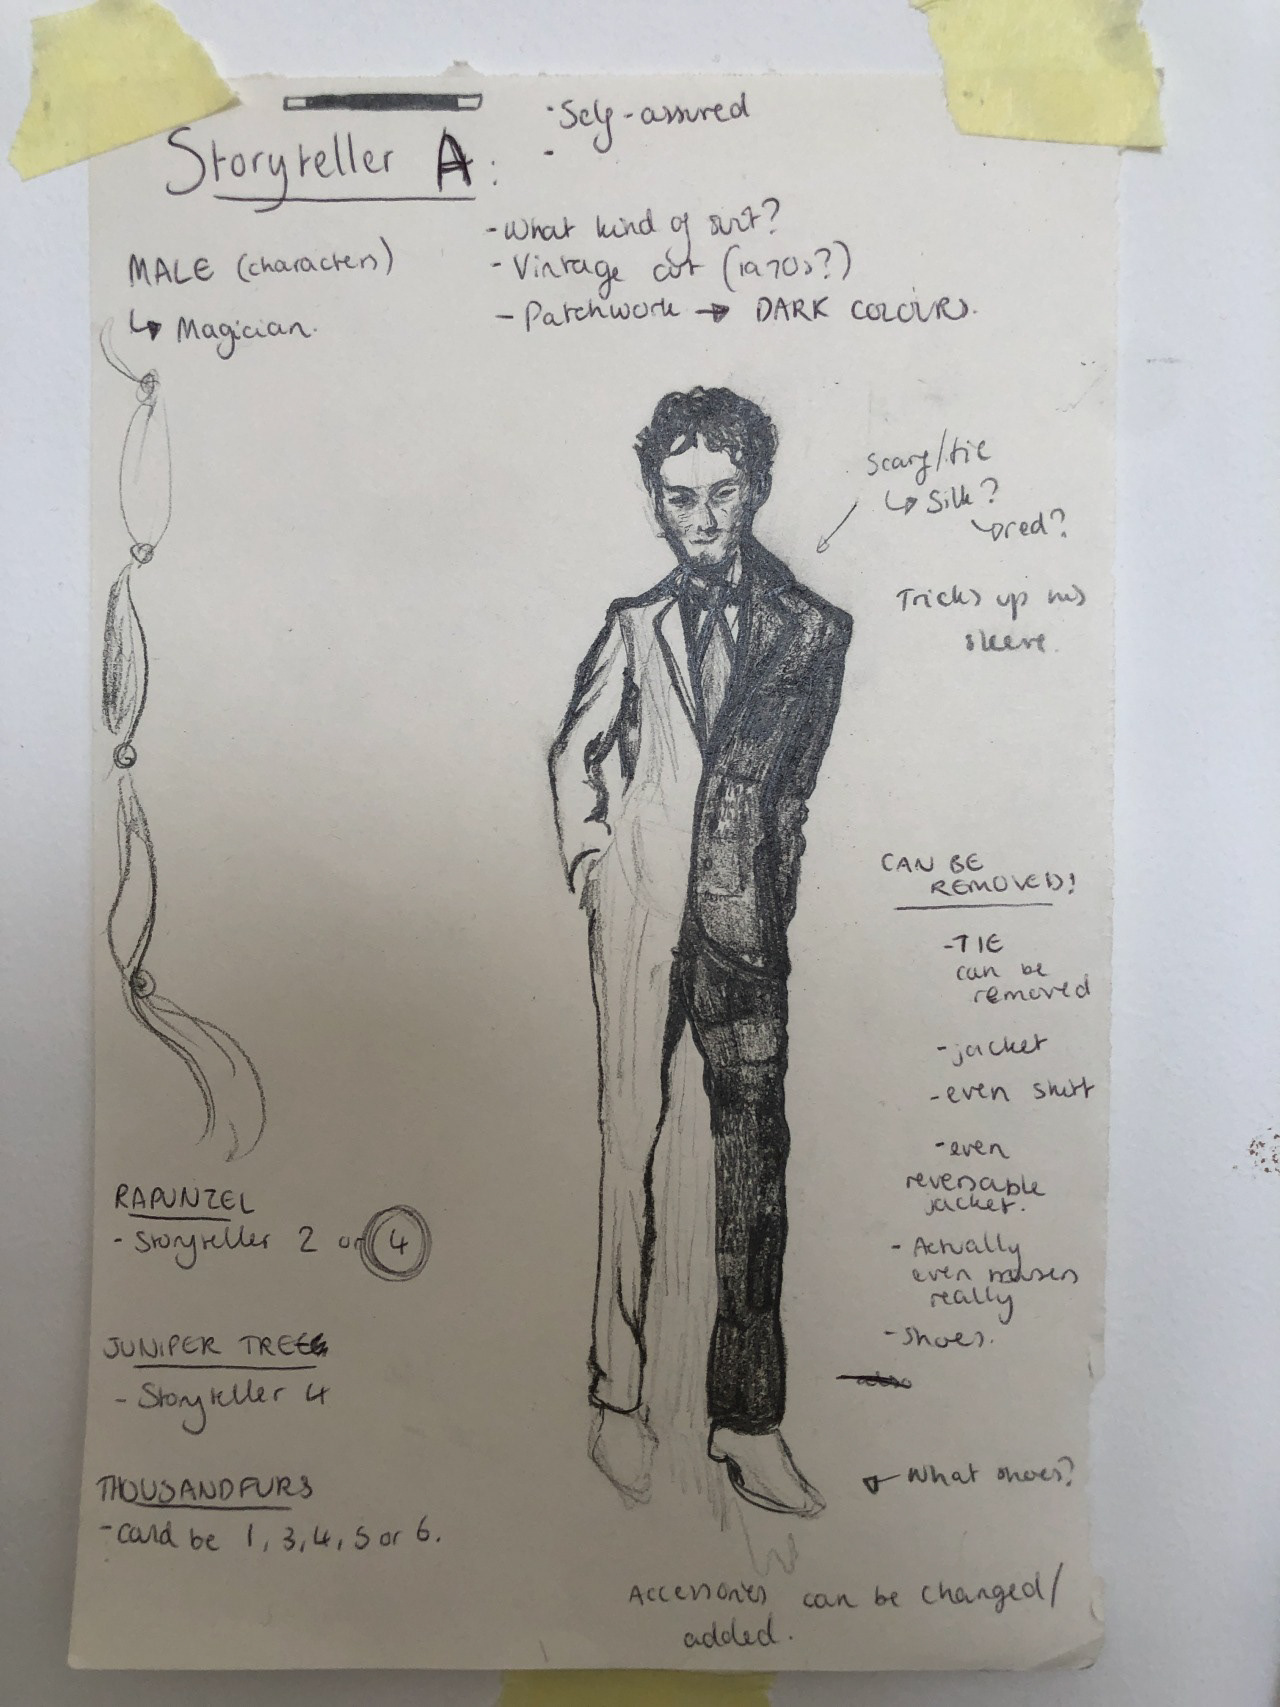 Storyteller A:
- Self-assured
-
MALE (characters)
↳ Magician.
- What kind of suit?
- Vintage cut (1970s?)
- Patchwork → DARK COLOURS.
Scarf/tie
↳ Silk?
↳ red?
Tricks up his
sleeve.
CAN BE
REMOVED!
- TIE
can be
removed
- jacket
- even shirt
- even
reversable
jacket.
- Actually
even trousers
really
- Shoes.
What shoes?
RAPUNZEL
- Storyteller 2 or 4
JUNIPER TREE
- Storyteller 4
THOUSANDFURS
- Could be 1, 3, 4, 5 or 6.
Accessories can be changed/
added.